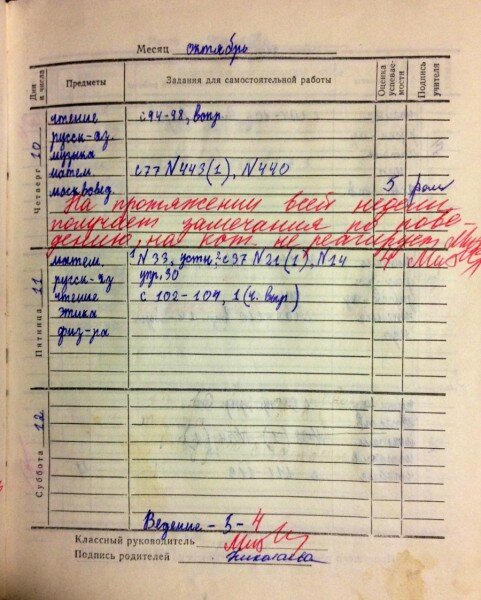 Месяц октябрь
Дни и числа
Предметы
Задания для самостоятельной работы
Оценка успеваемости
Подпись учителя
Четверг 10
чтение с 94-98, вопр
русск-яз.
музыка
матем. с 77 N443(1), N440
москвовед. 5
На протяжении всей недели
получает замечания по пове-
дению, на кот. не реагирует
матем. 1) N33, устн, 2) с37 N21(1), N14 4
русск-яз упр. 30
чтение с 102-104, 1 (ч. вопр)
этика
физ-ра
Пятница 11
Суббота 12
Ведение - 3-4
Классный руководитель
Подпись родителей Николаева